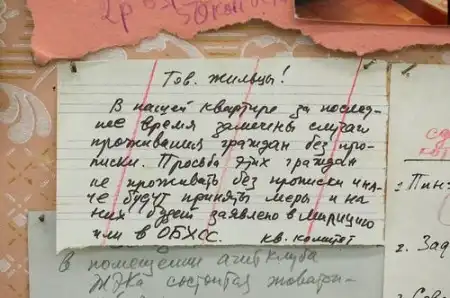 2 роз
50 коп
Тов. жильцы!
В нашей квартире за послед-
нее время замечены случаи
проживания граждан без про-
писки. Просьба этих граждан
не проживать без прописки ина-
че будут приняты меры и на
них будет заявлено в милицию
или в ОБХСС. кв. комитет
В помещении агитклуба
ЖЭКа состоится
1. Пин
2. Зад